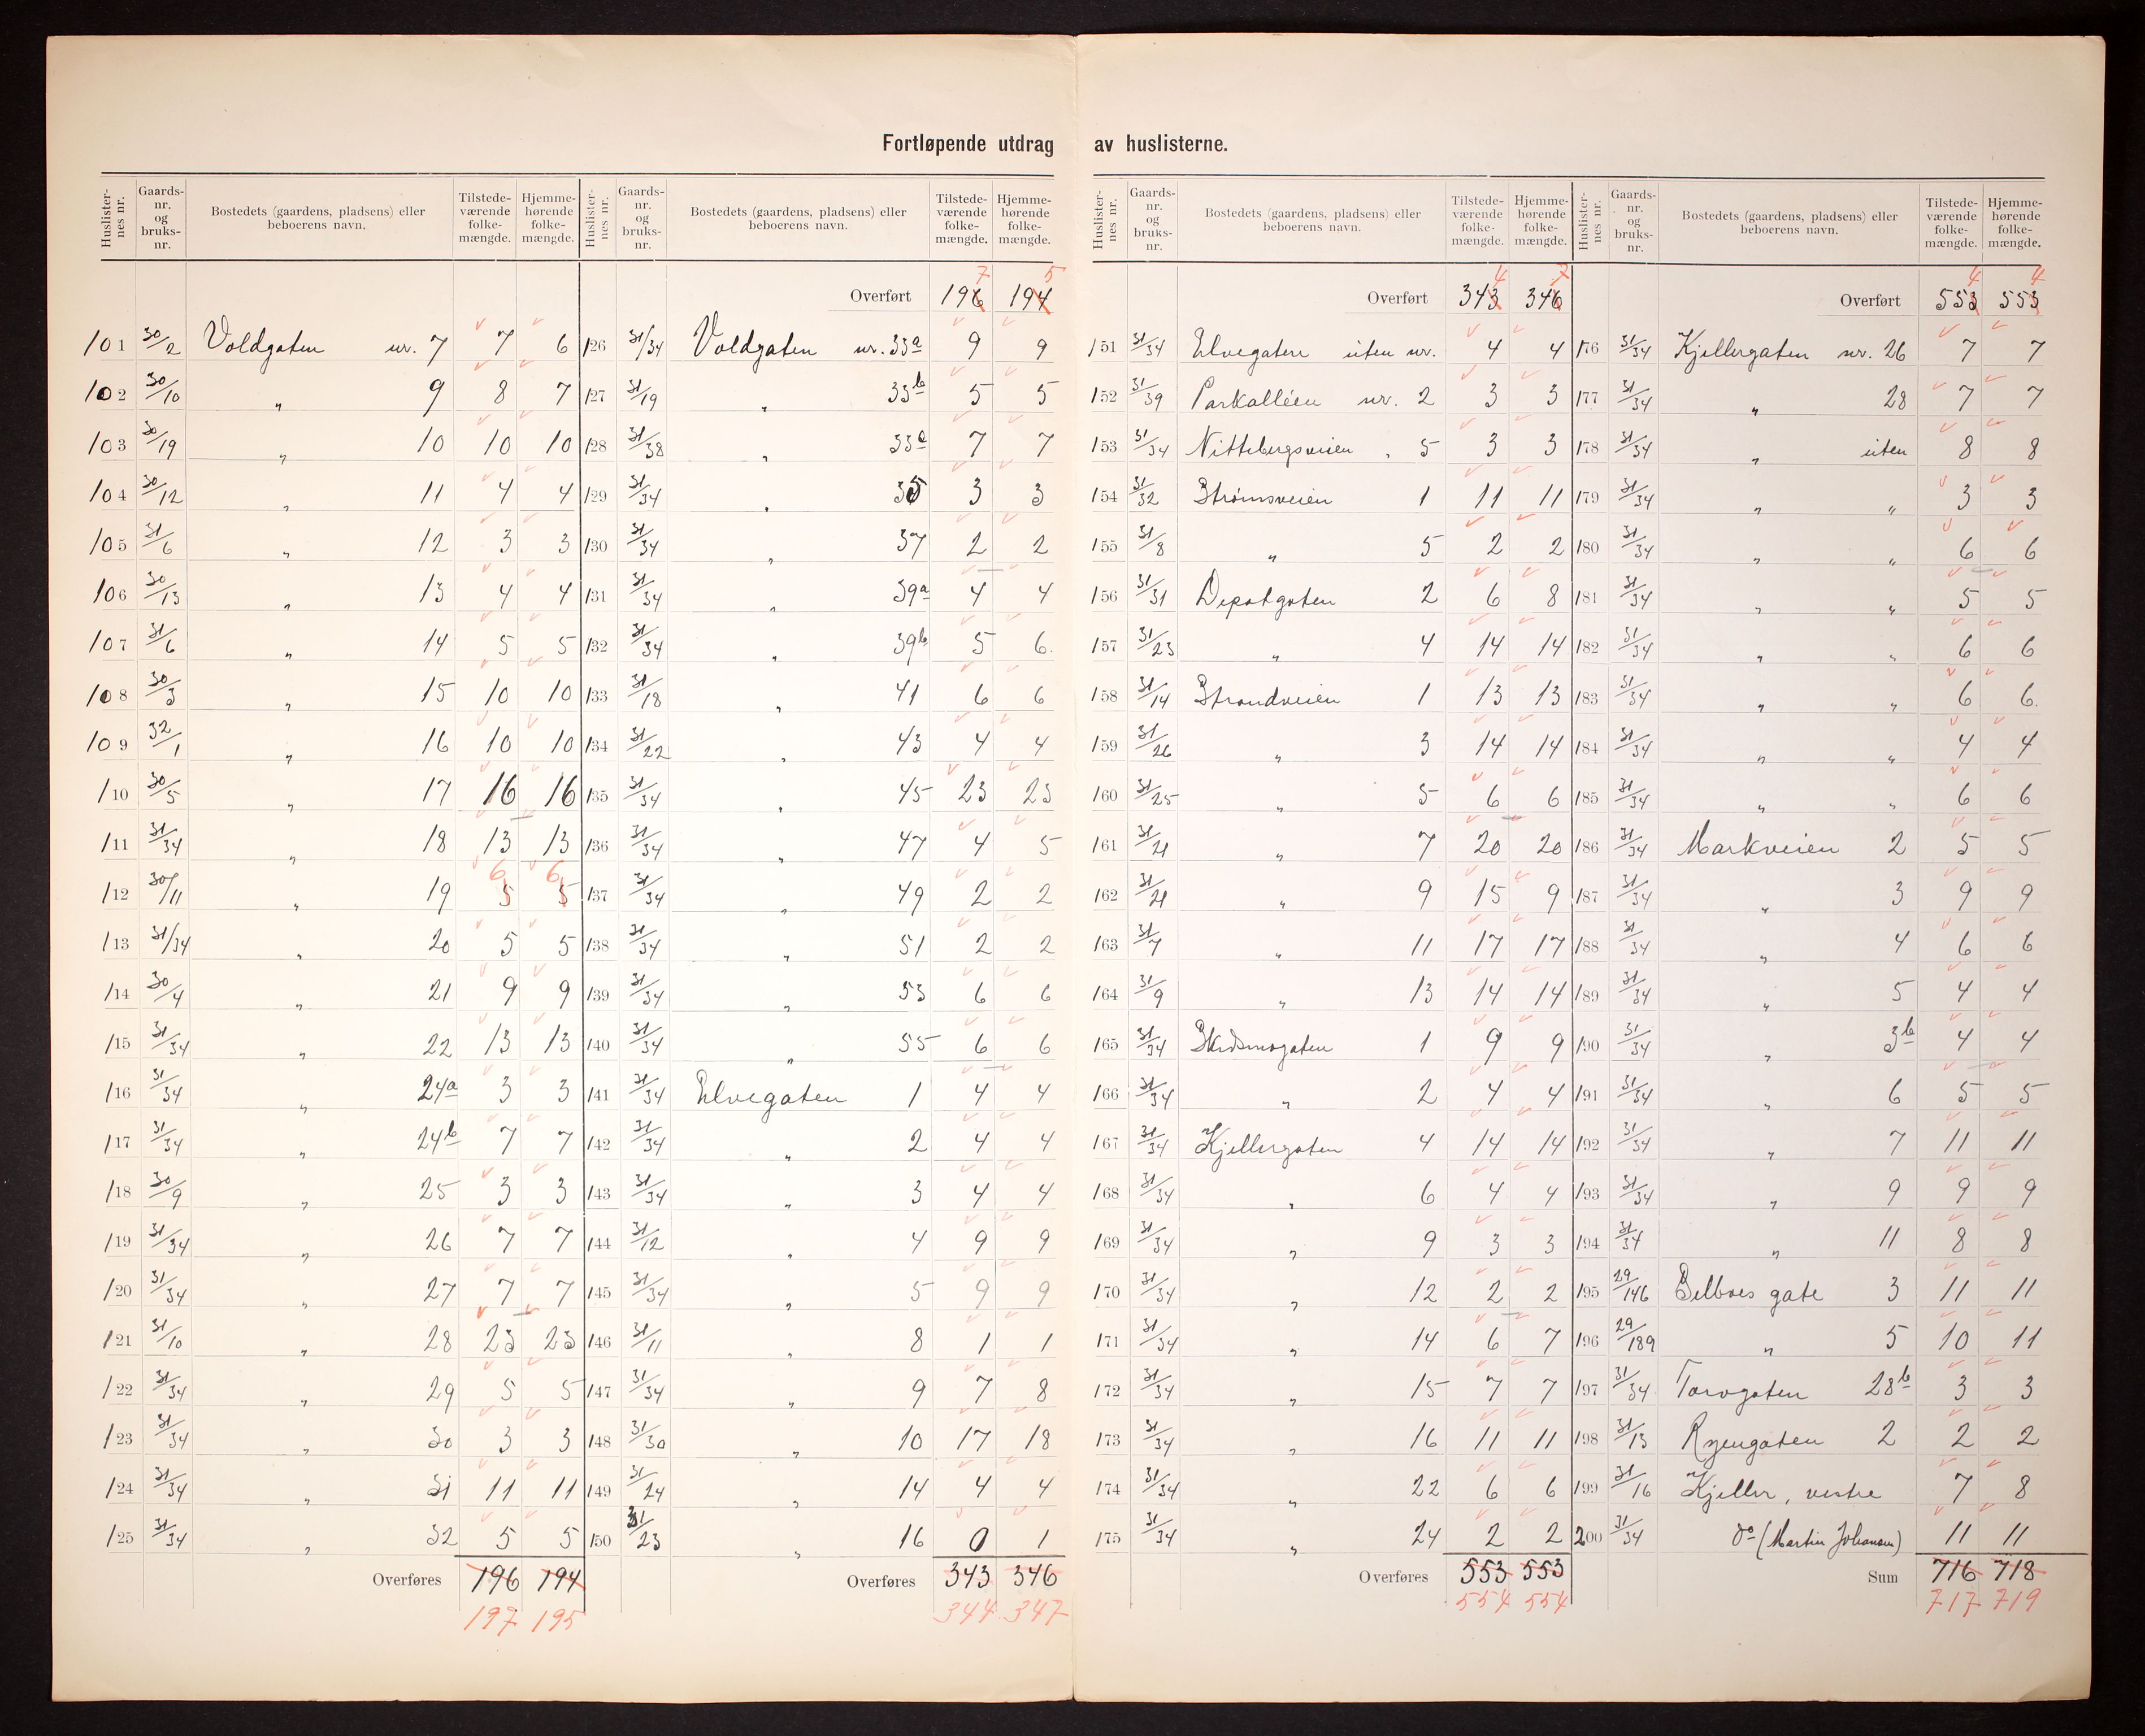 Fortløpende utdrag av huslisterne.
Huslister-nes nr. Gaards-nr. og bruks-nr. Bostedets (gaardens, pladsens) eller beboerens navn. Tilstede-værende folke-mængde. Hjemme-hørende folke-mængde.
101 30/2 Voldgaten nr. 7 7 6
102 30/10 " 9 8 7
103 30/19 " 10 10 10
104 30/12 " 11 4 4
105 31/6 " 12 3 3
106 30/13 " 13 4 4
107 31/6 " 14 5 5
108 30/3 " 15 10 10
109 32/1 " 16 10 10
110 30/5 " 17 16 16
111 31/34 " 18 13 13
112 30/11 " 19 5 5 6 6
113 31/34 " 20 5 5
114 30/4 " 21 9 9
115 31/34 " 22 13 13
116 31/34 " 24a 3 3
117 31/34 " 24b 7 7
118 30/9 " 25 3 3
119 31/34 " 26 7 7
120 31/34 " 27 7 7
121 31/10 " 28 23 23
122 31/34 " 29 5 5
123 31/34 " 30 3 3
124 31/34 " 31 11 11
125 31/34 " 32 5 5
Overføres 196 194
197 195
Huslister-nes nr. Gaards-nr. og bruks-nr. Bostedets (gaardens, pladsens) eller beboerens navn. Tilstede-værende folke-mængde. Hjemme-hørende folke-mængde.
7 5
Overført 196 194
126 31/34 Voldgaten nr. 33a 9 9
127 31/19 " 33b 5 5
128 31/38 " 33a 7 7
129 31/34 " 35 3 3
130 31/34 " 37 2 2
131 31/34 " 39a 4 4
132 31/34 " 39b 5 6.
133 31/18 " 41 6 6
134 31/22 " 43 4 4
135 31/34 " 45 23 23
136 31/34 " 47 4 5
137 31/34 " 49 2 2
138 31/34 " 51 2 2
139 31/34 " 53 6 6
140 31/34 " 55 6 6
141 31/34 Elvegaten 1 4 4
142 31/34 " 2 4 4
143 31/34 " 3 4 4
144 31/12 " 4 9 9
145 31/34 " 5 9 9
146 31/11 " 8 1 1
147 31/34 " 9 7 8
148 31/30 " 10 17 18
149 31/24 " 14 4 4
150 31/23 " 16 0 1
Overføres 343 346
344 347
Huslister-nes nr. Gaards-nr. og bruks-nr. Bostedets (gaardens, pladsens) eller beboerens navn. Tilstede-værende folke-mængde. Hjemme-hørende folke-mængde.
4 7
Overført 343 346
151 31/34 Elvegaten uten nr. 4 4
152 31/39 Parkalléen nr. 2 3 3
153 31/34 Nittebergsveien " 5 3 3
154 31/32 Strømsveien 1 11 11
155 31/8 " 5 2 2
156 31/31 Depotgaten 2 6 8
157 31/23 " 4 14 14
158 31/14 Strandveien 1 13 13
159 31/26 " 3 14 14
160 31/25 " 5 6 6
161 31/21 " 7 20 20
162 31/21 " 9 15 9
163 31/7 " 11 17 17
164 31/9 " 13 14 14
165 31/34 Skedsmogaten 1 9 9
166 31/34 " 2 4 4
167 31/34 Kjellergaten 4 14 14
168 31/34 " 6 4 4
169 31/34 " 9 3 3
170 31/34 " 12 2 2
171 31/34 " 14 6 7
172 31/34 " 15 7 7
173 31/34 " 16 11 11
174 31/34 " 22 6 6
175 31/34 " 24 2 2
Overføres 553 553
554 554
Huslister-nes nr. Gaards-nr. og bruks-nr. Bostedets (gaardens, pladsens) eller beboerens navn. Tilstede-værende folke-mængde. Hjemme-hørende folke-mængde.
4 4
Overført 553 553
176 31/34 Kjellergaten nr. 26 7 7
177 31/34 " 28 7 7
178 31/34 " uten 8 8
179 31/34 " " 3 3
180 31/34 " " 6 6
181 31/34 " " 5 5
182 31/34 " " 6 6
183 31/34 " " 6 6.
184 31/34 " " 4 4
185 31/34 " " 6 6
186 31/34 Markveien 2 5 5
187 31/34 " 3 9 9
188 31/34 " 4 6 6
189 31/34 " 5 4 4
190 31/34 " 3b 4 4
191 31/34 " 6 5 5
192 31/34 " 7 11 11
193 31/34 " 9 9 9
194 31/34 " 11 8 8
195 29/146 gate 3 11 11
196 29/189 " 5 10 11
197 31/34 Torvgaten 28b 3 3
198 31/13 Ryengaten 2 2 2
199 31/16 Kjeller, vestre 7 8
200 31/34 do (Martin Johansen) 11 11
Sum 716 718
717 719